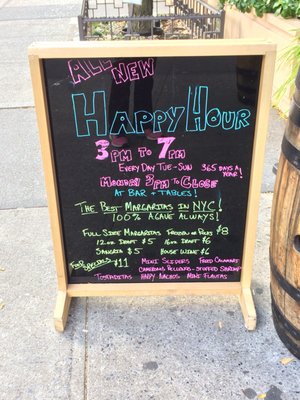 ALL NEW
HAPPY HOUR
3PM TO 7PM
EVERY DAY TUE-SUN 365 DAYS A YEAR!
MONDAY 3PM TO CLOSE
AT BAR + TABLES!
THE BEST MARGARITAS IN NYC!
100% AGAVE ALWAYS!
FULL SIZE MARGARITAS FROZEN OR ROCKS $8
12oz DRAFT $5 16oz DRAFT $6
SANGRIA $5 HOUSE WINE $6
FOOD SPECIALS $11 MINI SLIDERS FRIED CALAMARI
CAMARONES RELLENOS - STUFFED SHRIMP
TOSTADITAS HAPPY NACHOS MINI FLAUTAS